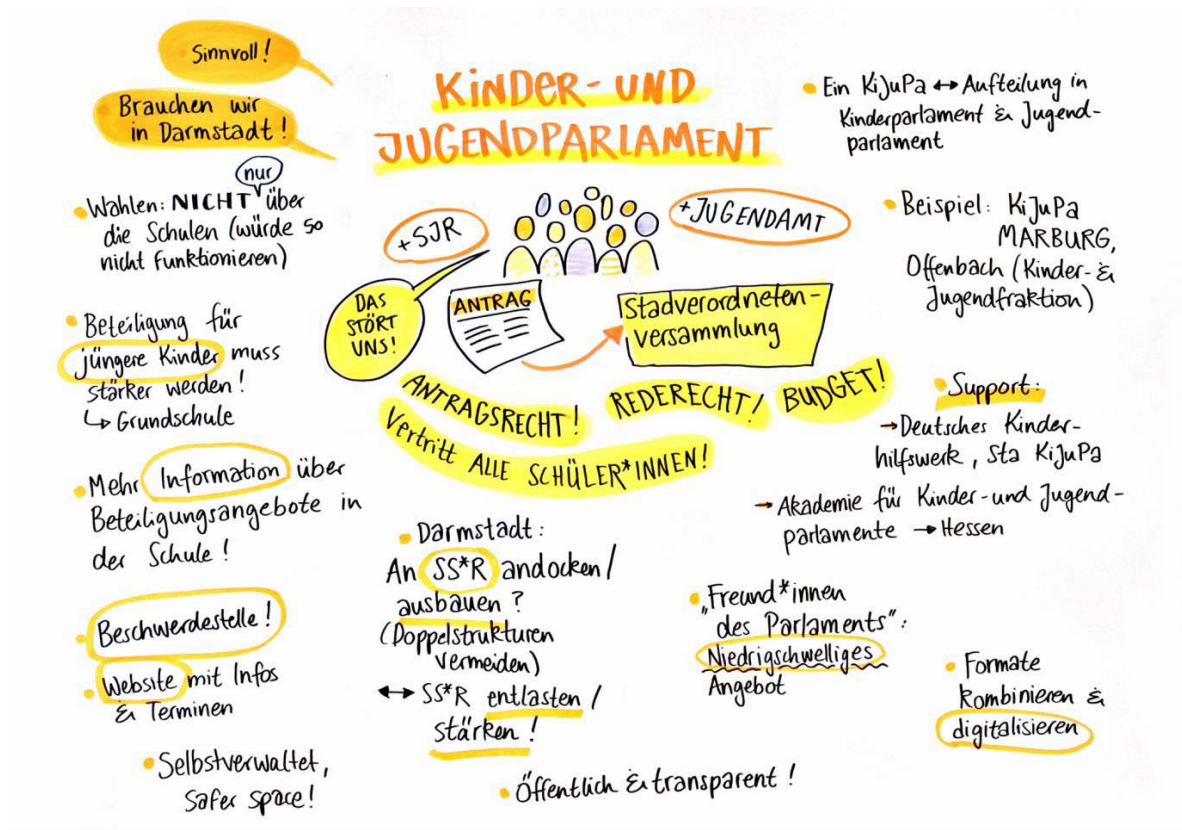 Sinnvoll!
Brauchen wir
in Darmstadt!
KINDER- UND
JUGENDPARLAMENT
• Ein KiJuPa ↔ Aufteilung in
Kinderparlament & Jugend-
parlament
nur
• Wahlen: NICHT über
die Schulen (würde so
nicht funktionieren)
+ SJR
+ JUGENDAMT
• Beispiel: KiJuPa
MARBURG,
Offenbach (Kinder- &
Jugendfraktion)
DAS
STÖRT
UNS!
ANTRAG
Stadverordneten-
versammlung
• Beteiligung für
jüngere Kinder muss
stärker werden!
↳ Grundschule
ANTRAGSRECHT!
REDERECHT!
BUDGET!
Vertritt ALLE SCHÜLER*INNEN!
• Support:
→ Deutsches Kinder-
hilfswerk, Sta KiJuPa
→ Akademie für Kinder- und Jugend-
parlamente → Hessen
• Mehr Information über
Beteiligungsangebote in
der Schule!
• Darmstadt:
An SS*R andocken /
ausbauen?
(Doppelstrukturen
vermeiden)
↔ SS*R entlasten /
stärken!
• „Freund*innen
des Parlaments":
Niedrigschwelliges
Angebot
• Beschwerdestelle!
• Website mit Infos
& Terminen
• Formate
kombinieren &
digitalisieren
• Selbstverwaltet,
Safer space!
• Öffentlich & transparent!